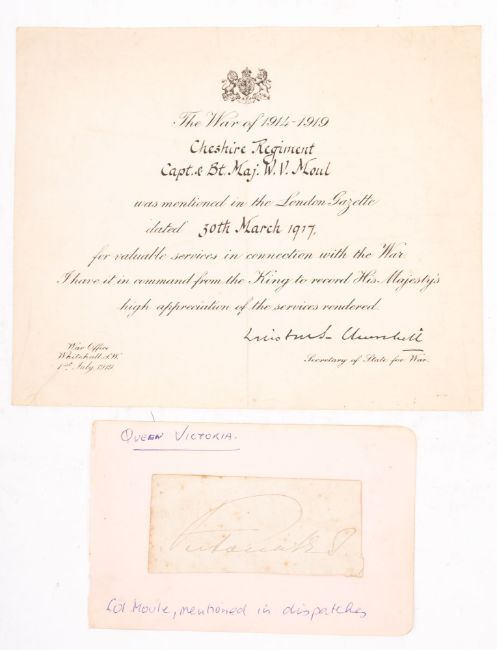 The War of 1914-1919
Cheshire Regiment
Capt. & Bt. Maj. W. V. Moul
was mentioned in the London Gazette
dated 30th March 1917.
for valuable services in connection with the War.
I have it in command from the King to record His Majesty's
high appreciation of the services rendered.
Winston S Churchill
War Office
Whitehall, S.W.
1st July 1919
Secretary of State for War.
QUEEN VICTORIA.
Victoria R
Col Moule, mentioned in dispatches